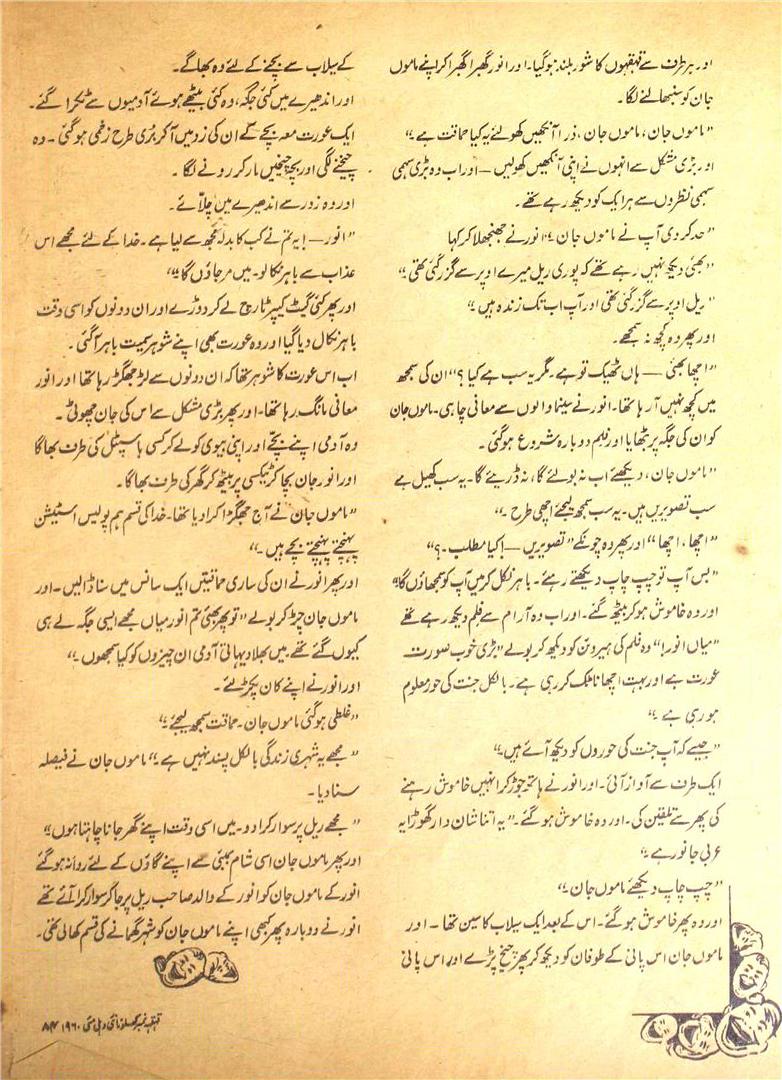 اور ہر طرف سے قہقہوں کا شور بلند ہوگیا۔ اور انور گھبرا گھبرا کر اپنے ماموں
جان کو سنبھالنے لگا۔
"ماموں جان، ماموں جان، ذرا آنکھیں کھولئے یہ کیا حماقت ہے۔"
اور بڑی مشکل سے انہوں نے اپنی آنکھیں کھولیں — اور اب وہ بڑی سہمی
سہمی نظروں سے ہر ایک کو دیکھ رہے تھے۔
"حد کردی آپ نے ماموں جان۔" انور نے جھنجھلا کر کہا
"بھئی دیکھ نہیں رہے تھے کہ پوری ریل میرے اوپر سے گزر گئی تھی۔"
"ریل اوپر سے گزر گئی تھی اور آپ اب تک زندہ ہیں۔"
اور پھر وہ کچھ نہ سمجھے۔
"اچھا بھئی — ہاں ٹھیک تو ہے۔ مگر یہ سب ہے کیا؟" ان کی سمجھ
میں کچھ نہیں آ رہا تھا۔ انور نے سینما والوں سے معافی چاہی۔ ماموں جان
کو ان کی جگہ پر بٹھایا اور فلم دوبارہ شروع ہوگئی۔
"ماموں جان، دیکھئے اب نہ بولئے گا، نہ ڈریئے گا۔ یہ سب کھیل ہے
سب تصویریں ہیں۔ یہ سب سمجھ لیجئے اچھی طرح۔"
"اچھا، اچھا" اور پھر وہ چونکے "تصویریں — کیا مطلب۔؟"
"بس آپ تو چپ چاپ دیکھتے رہئے۔ باہر نکل کر میں آپ کو سمجھاؤں گا۔"
اور وہ خاموش ہو کر بیٹھ گئے۔ اور اب وہ آرام سے فلم دیکھ رہے تھے
"میاں انور!" وہ فلم کی ہیروئن کو دیکھ کر بولے "بڑی خوب صورت
عورت ہے اور بہت اچھا ناٹک کر رہی ہے۔ بالکل جنت کی حور معلوم
ہو رہی ہے۔"
"جیسے کہ آپ جنت کی حوروں کو دیکھ آئے ہیں۔"
ایک طرف سے آواز آئی۔ اور انور نے ہاتھ جوڑ کر انہیں خاموش رہنے
کی پھر سے تلقین کی۔ اور وہ خاموش ہو گئے۔ "یہ اتنا شان دار گھوڑا یہ
عربی جانور ہے۔"
"چپ چاپ دیکھئے ماموں جان۔"
اور وہ پھر خاموش ہو گئے۔ اس کے بعد ایک سیلاب کا سین تھا۔ اور
ماموں جان اس پانی کے طوفان کو دیکھ کر پھر چیخ پڑے اور اس پانی
کے سیلاب سے بچنے کے لئے وہ بھاگے۔
اور اندھیرے میں کئی جگہ، وہ کئی بیٹھے ہوئے آدمیوں سے ٹکرا گئے۔
ایک عورت معہ بچے کے ان کی زد میں آکر بُری طرح زخمی ہوگئی۔ وہ
چیخنے لگی اور بچہ چیخیں مار کر رونے لگا۔
اور وہ زور سے اندھیرے میں چلّائے۔
"انور — یہ تم نے کب کا بدلہ مجھ سے لیا ہے۔ خدا کے لئے مجھے اس
عذاب سے باہر نکالو۔ میں مر جاؤں گا۔"
اور پھر کئی گیٹ کیپر ٹارچ لے کر دوڑے اور ان دونوں کو اسی وقت
باہر نکال دیا گیا اور وہ عورت بھی اپنے شوہر سمیت باہر آگئی۔
اب اس عورت کا شوہر تھا کہ ان دونوں سے لڑ جھگڑ رہا تھا اور انور
معافی مانگ رہا تھا۔ اور پھر بڑی مشکل سے اس کی جان چھوٹی۔
وہ آدمی اپنے بچے اور اپنی بیوی کو لے کر کسی ہاسپٹل کی طرف بھاگا
اور انور جان بچا کر ٹیکسی پر بیٹھ کر گھر کی طرف بھاگا۔
"ماموں جان نے آج جھگڑا کرا دیا تھا۔ خدا کی قسم ہم پولیس اسٹیشن
پہنچتے پہنچتے بچے ہیں۔"
اور پھر انور نے ان کی ساری حماقتیں ایک سانس میں سنا ڈالیں۔ اور
ماموں جان چڑ کر بولے "تو پھر بھئی تم انور میاں مجھے ایسی جگہ لے ہی
کیوں گئے تھے۔ میں بھلا دیہاتی آدمی ان چیزوں کو کیا سمجھوں۔"
اور انور نے اپنے کان پکڑ لئے۔
"غلطی ہوگئی ماموں جان۔ حماقت سمجھ لیجئے۔"
"مجھے یہ شہری زندگی بالکل پسند نہیں ہے۔" ماموں جان نے فیصلہ
سنا دیا۔
"مجھے ریل پر سوار کرا دو۔ میں اسی وقت اپنے گھر جانا چاہتا ہوں"
اور پھر ماموں جان اسی شام بمبئی سے اپنے گاؤں کے لئے روانہ ہو گئے
انور کے ماموں جان کو انور کے والد صاحب ریل پر جا کر سوار کرا آئے تھے
انور نے دوبارہ پھر کبھی اپنے ماموں جان کو شہر گھمانے کی قسم کھالی تھی۔
قہقہہ نمبر کھلونا نئی دہلی مئی ۱۹۶۰